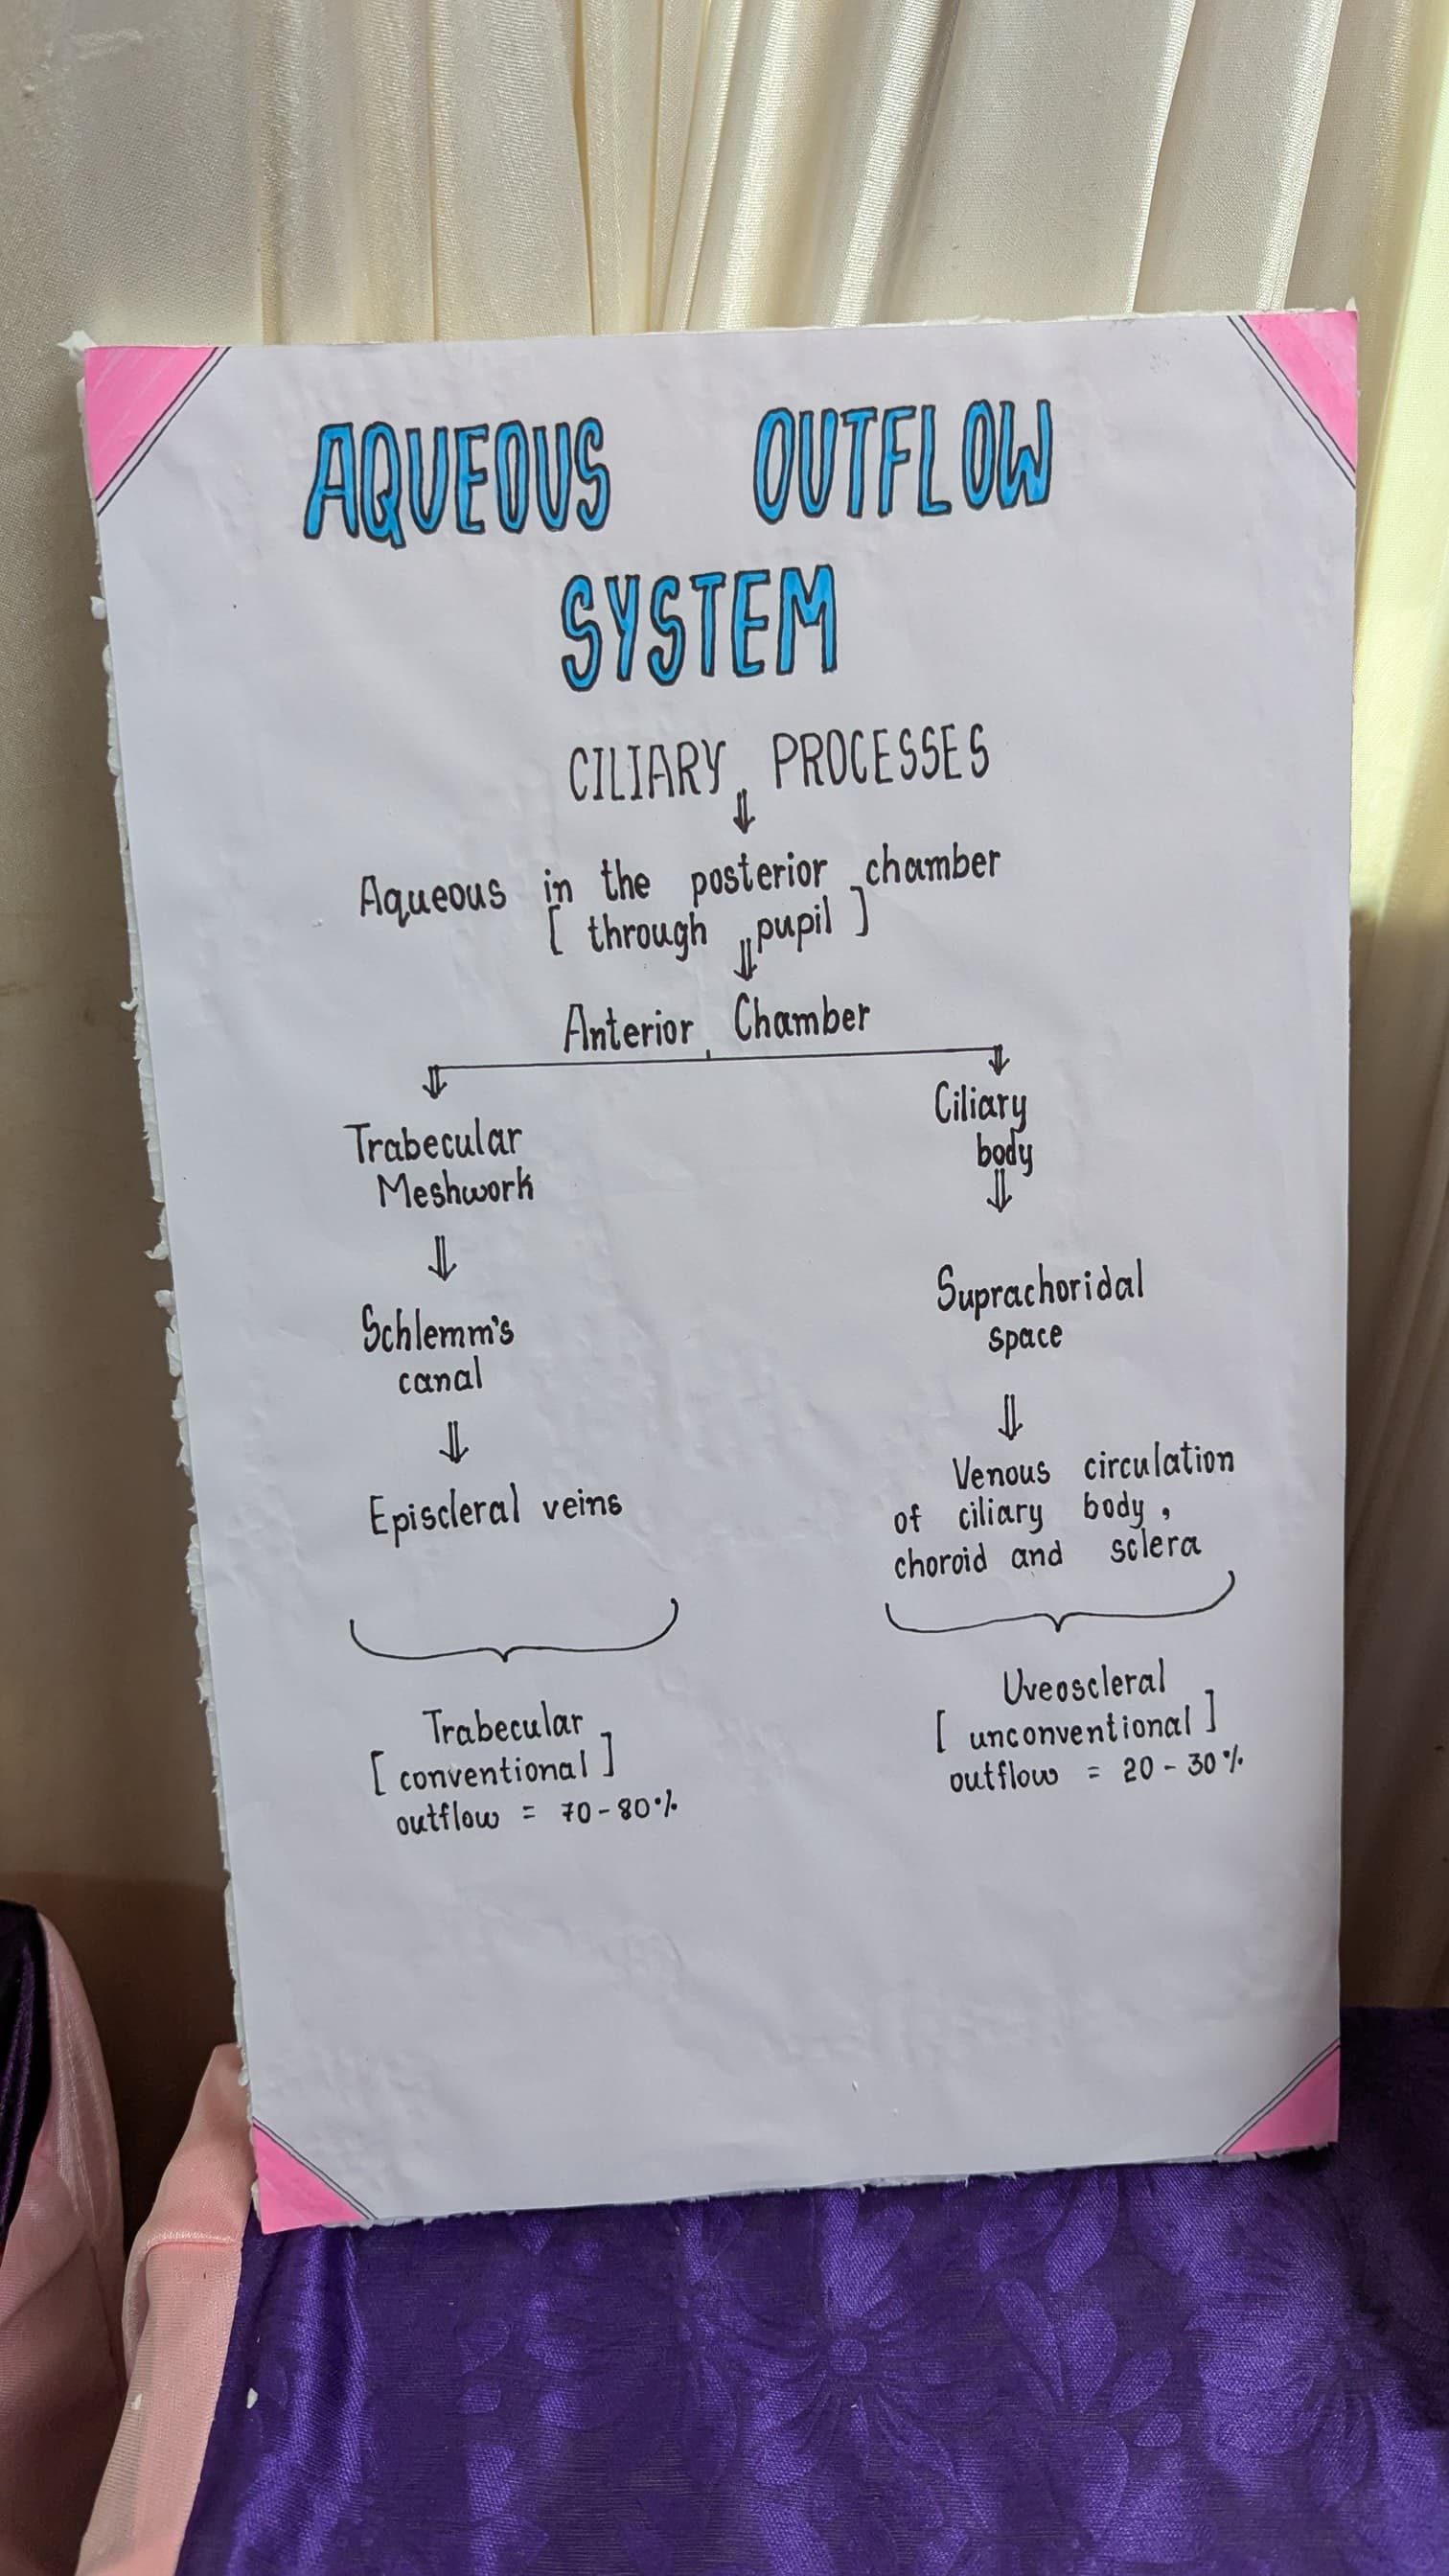 AQUEOUS OUTFLOW
SYSTEM
CILIARY PROCESSES
Aqueous in the posterior chamber
[ through pupil ]
Anterior Chamber
Trabecular
Meshwork
Schlemm's
canal
Episcleral veins
Trabecular
[ conventional ]
outflow = 70-80%
Ciliary
body
Suprachoridal
space
Venous circulation
of ciliary body,
choroid and sclera
Uveoscleral
[ unconventional ]
outflow = 20-30%